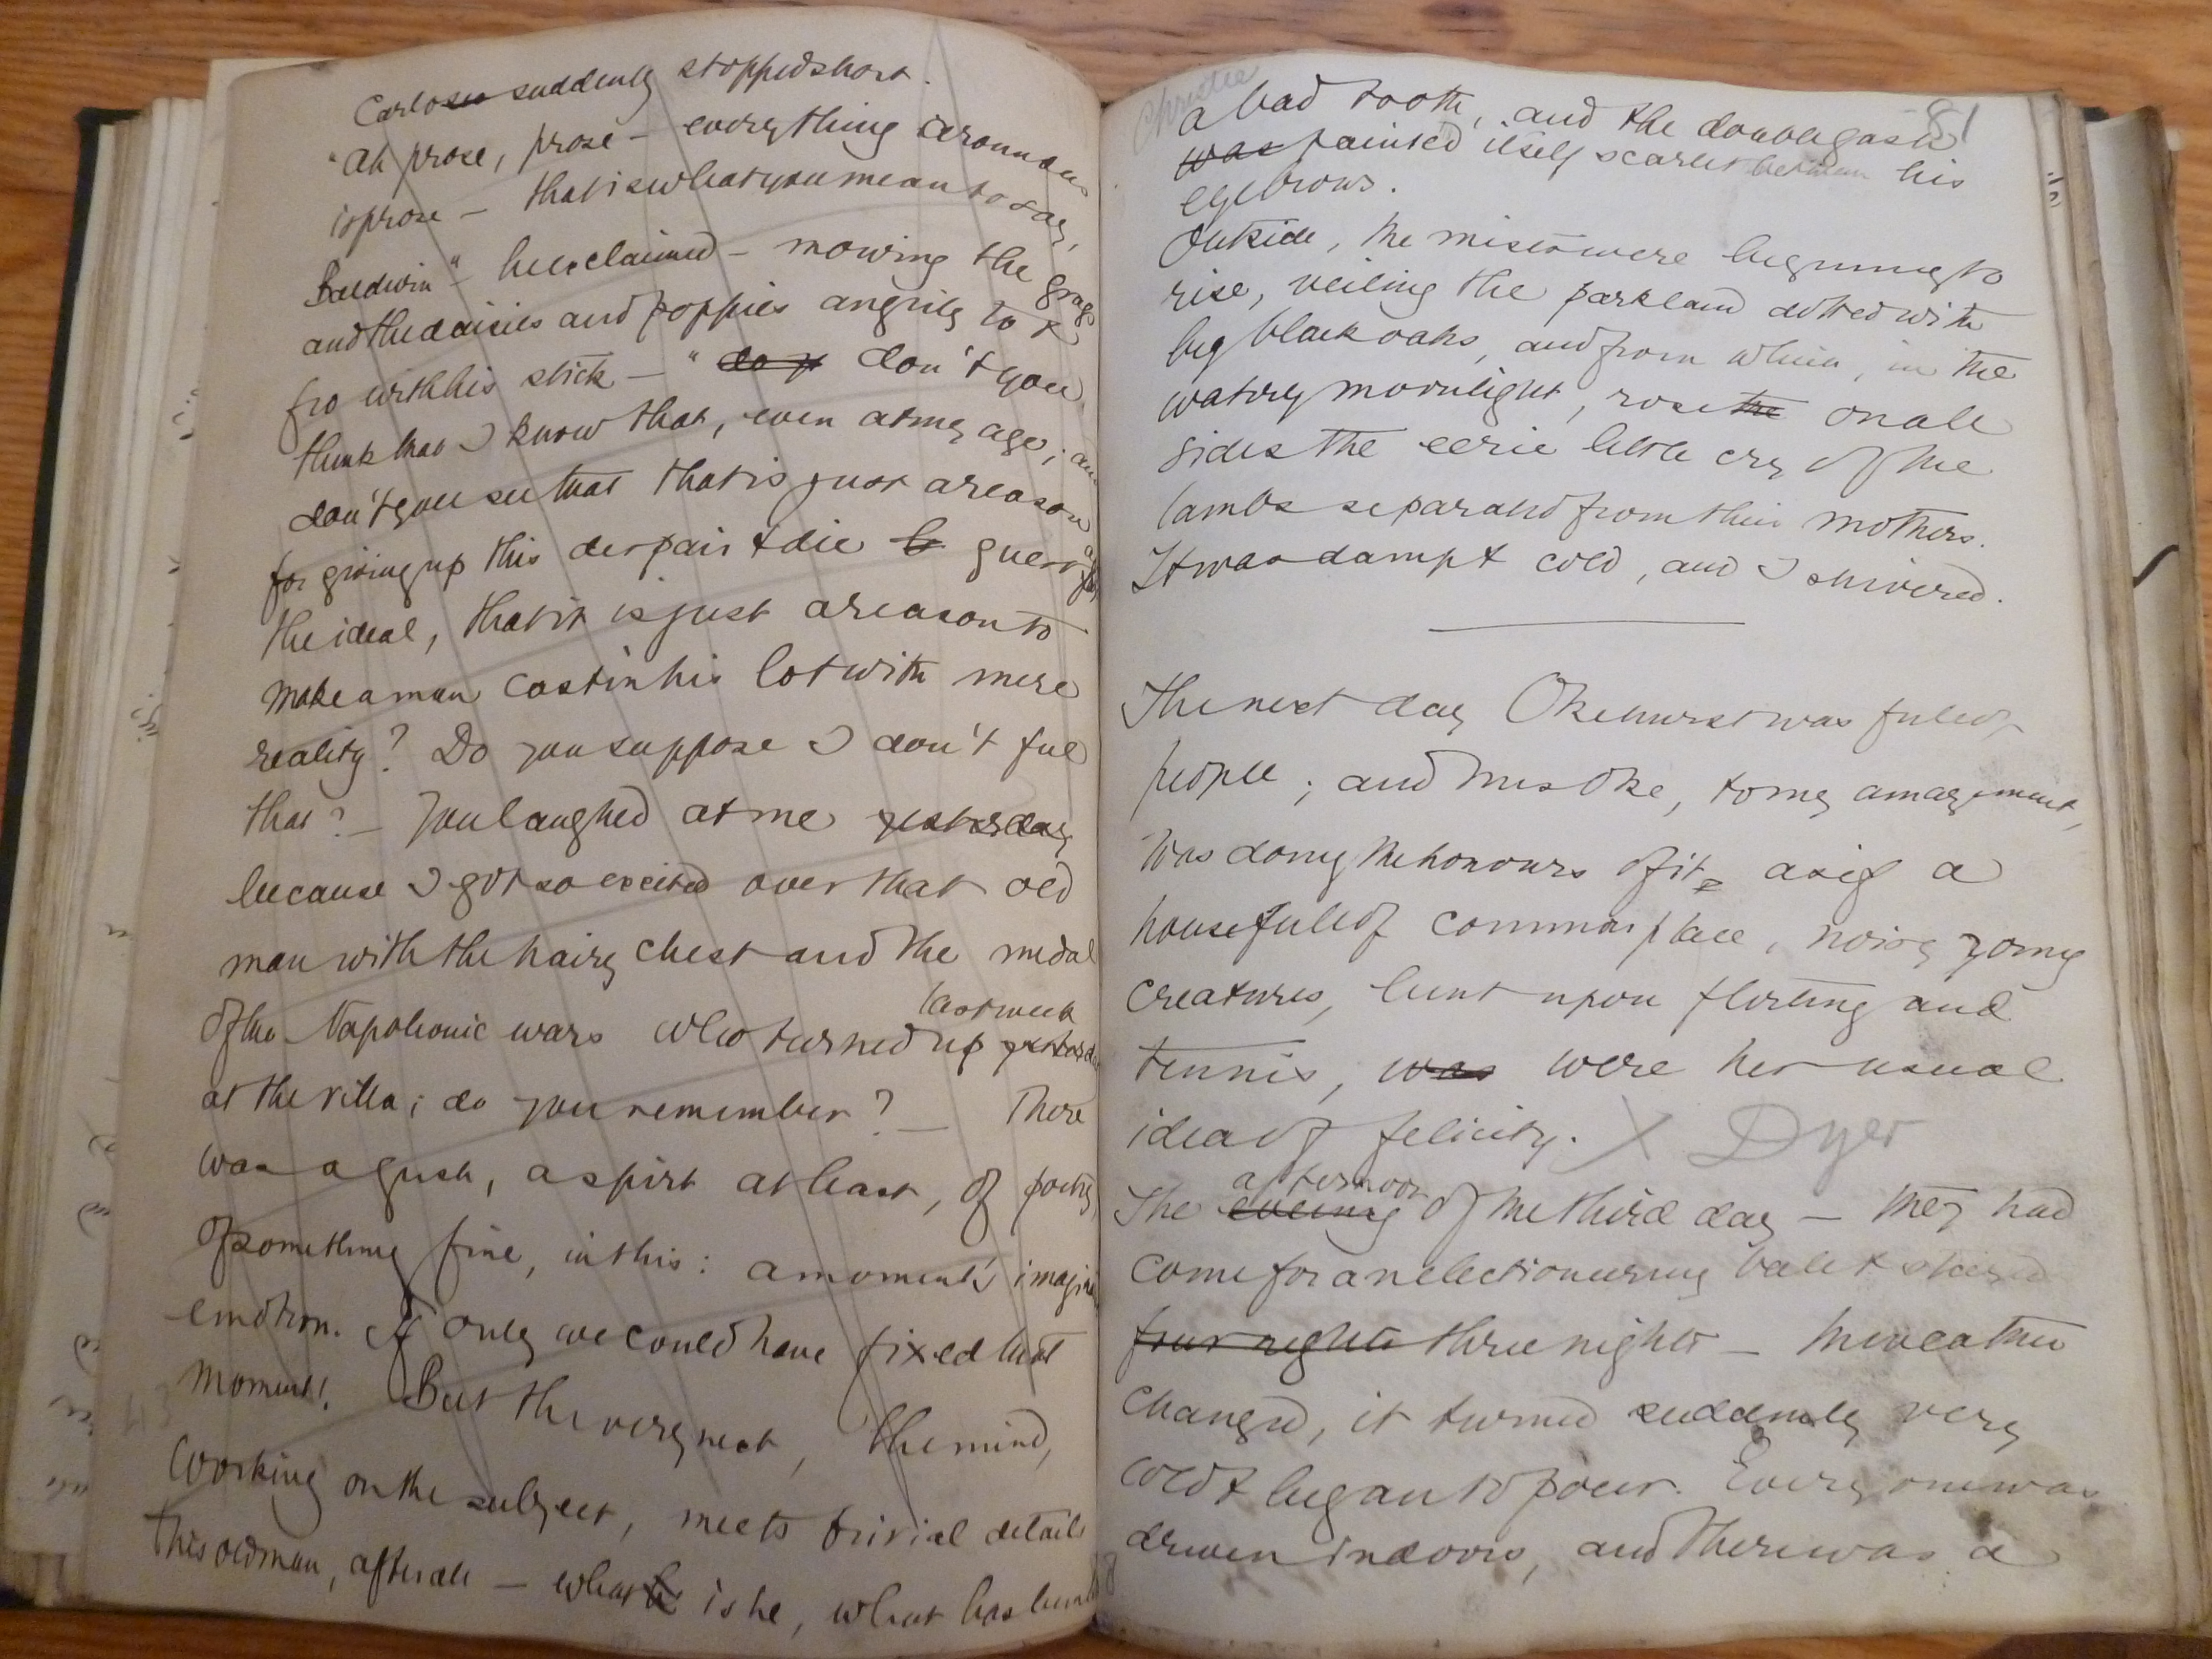 Carlo suddenly stopped short.
"Ah prose, prose — everything around us
is prose — that is what you mean to say,
Baldwin" — he exclaimed — mowing the grass
and the daisies and poppies angrily to &
fro with his stick — "do y don't you
think that I know that, even at my age; and
don't you see that that is just a reason
for giving up this despair & die
the ideal, that it is just a reason to
make a man cast in his lot with mere
reality? Do you suppose I don't feel
that? — You laughed at me yesterday
because I got so excited over that old
man with the hairy chest and the medal
last week
of the Napoleonic wars who turned up yesterday
at the villa; do you remember? — There
was a gush, a spirt at least, of poetry,
of something fine, in this: a moment's
emotion. If only we could have fixed that
moment! But the very next, the mind,
working on the subject, meets trivial details
This old man, after all — what is he, what has
Christie
81
a bad tooth, and the double gash
was painted itself scarlet between his
eyebrows.
Outside, the mists were beginning to
rise, veiling the park land dotted with
big black oaks, and from which, in the
watery moonlight, rose the on all
sides the eerie little cry of the
lambs separated from their mothers.
It was damp & cold, and I shivered.
The next day Okehurst was full of
people; and Mrs Oke, to my amazement,
was doing the honours of it as if a
house full of commonplace, noisy young
creatures, bent upon flirting and
tennis, was were her usual
idea of felicity. X Dyer
afternoon
The evening of the third day — they had
come for an electioneering ball & stayed
four nights three nights — the weather
changed, it turned suddenly very
cold & began to pour. Every one was
driven indoors, and there was a